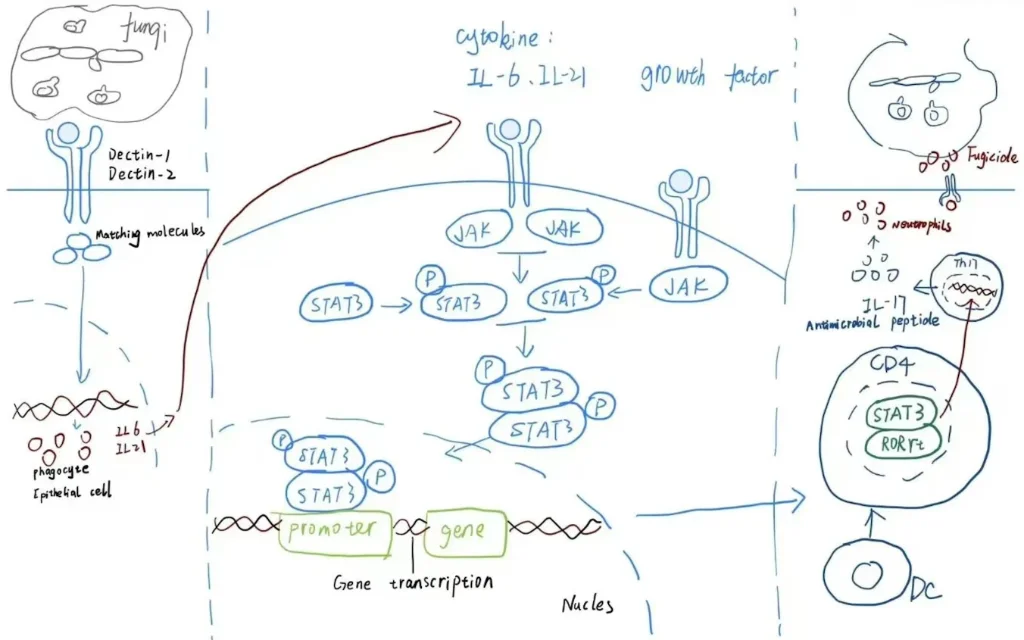 fungi
Dectin-1
Dectin-2
Matching molecules
IL6
IL21
phagocyte
Epithelial cell
cytokine:
IL-6. IL-21 growth factor
JAK JAK
JAK
STAT3
P
STAT3
P
STAT3
P
STAT3
STAT3
P
P
STAT3
STAT3
P
promoter gene
Gene transcription
Nucles
Fugicide
Neutrophils
Th17
IL-17
Antimicrobial peptide
CD4
STAT3
RORγt
DC